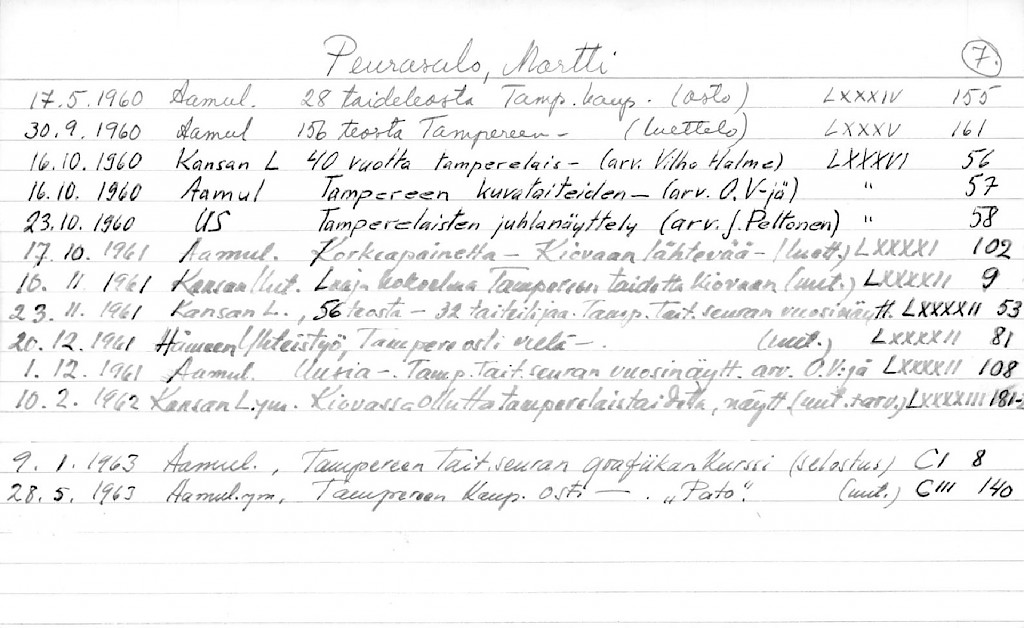 Peurasalo, Martti 7.
17.5.1960 Aamul. 28 taideteosta Tamp. kaup. (osto) LXXXIV 155
30.9.1960 Aamul 156 teosta Tampereen- (luettelo) LXXXV 161
16.10.1960 Kansan L 40 vuotta tamperelais- (arv. Vilho Halme) LXXXVI 56
16.10.1960 Aamul Tampereen kuvataiteiden- (arv. O.V-jä) " 57
23.10.1960 US Tamperelaisten juhlanäyttely (arv. J. Peltonen) " 58
17.10.1961 Aamul. Korkeapainetta - Kiovaan lähtevää - (luett.) LXXXXI 102
10.11.1961 Kansan Laaja kokoelma Tampereen taidetta Kiovaan (uut.) LXXXXII 9
23.11.1961 Kansan L., 56 teosta - 32 taiteilijaa. Tamp. Tait. seuran vuosinäytt. LXXXXII 53
20.12.1961 Hämeen Yhteistyö, Tampere osti vielä-. (uut.) LXXXXII 81
1.12.1961 Aamul. Uusia-. Tamp. Tait. seuran vuosinäytt. arv. O.V:jä LXXXXII 108
10.2.1962 Kansan L. ym. Kiovassa ollutta tamperelaistaidetta, näytt. (uut. + arv.) LXXXXIII 181-
9.1.1963 Aamul., Tampereen Tait. seuran grafiikan kurssi (selostus) CI 8
28.5.1963 Aamul. ym, Tampereen Kaup. osti -. "Pato". (uut.) CIII 140